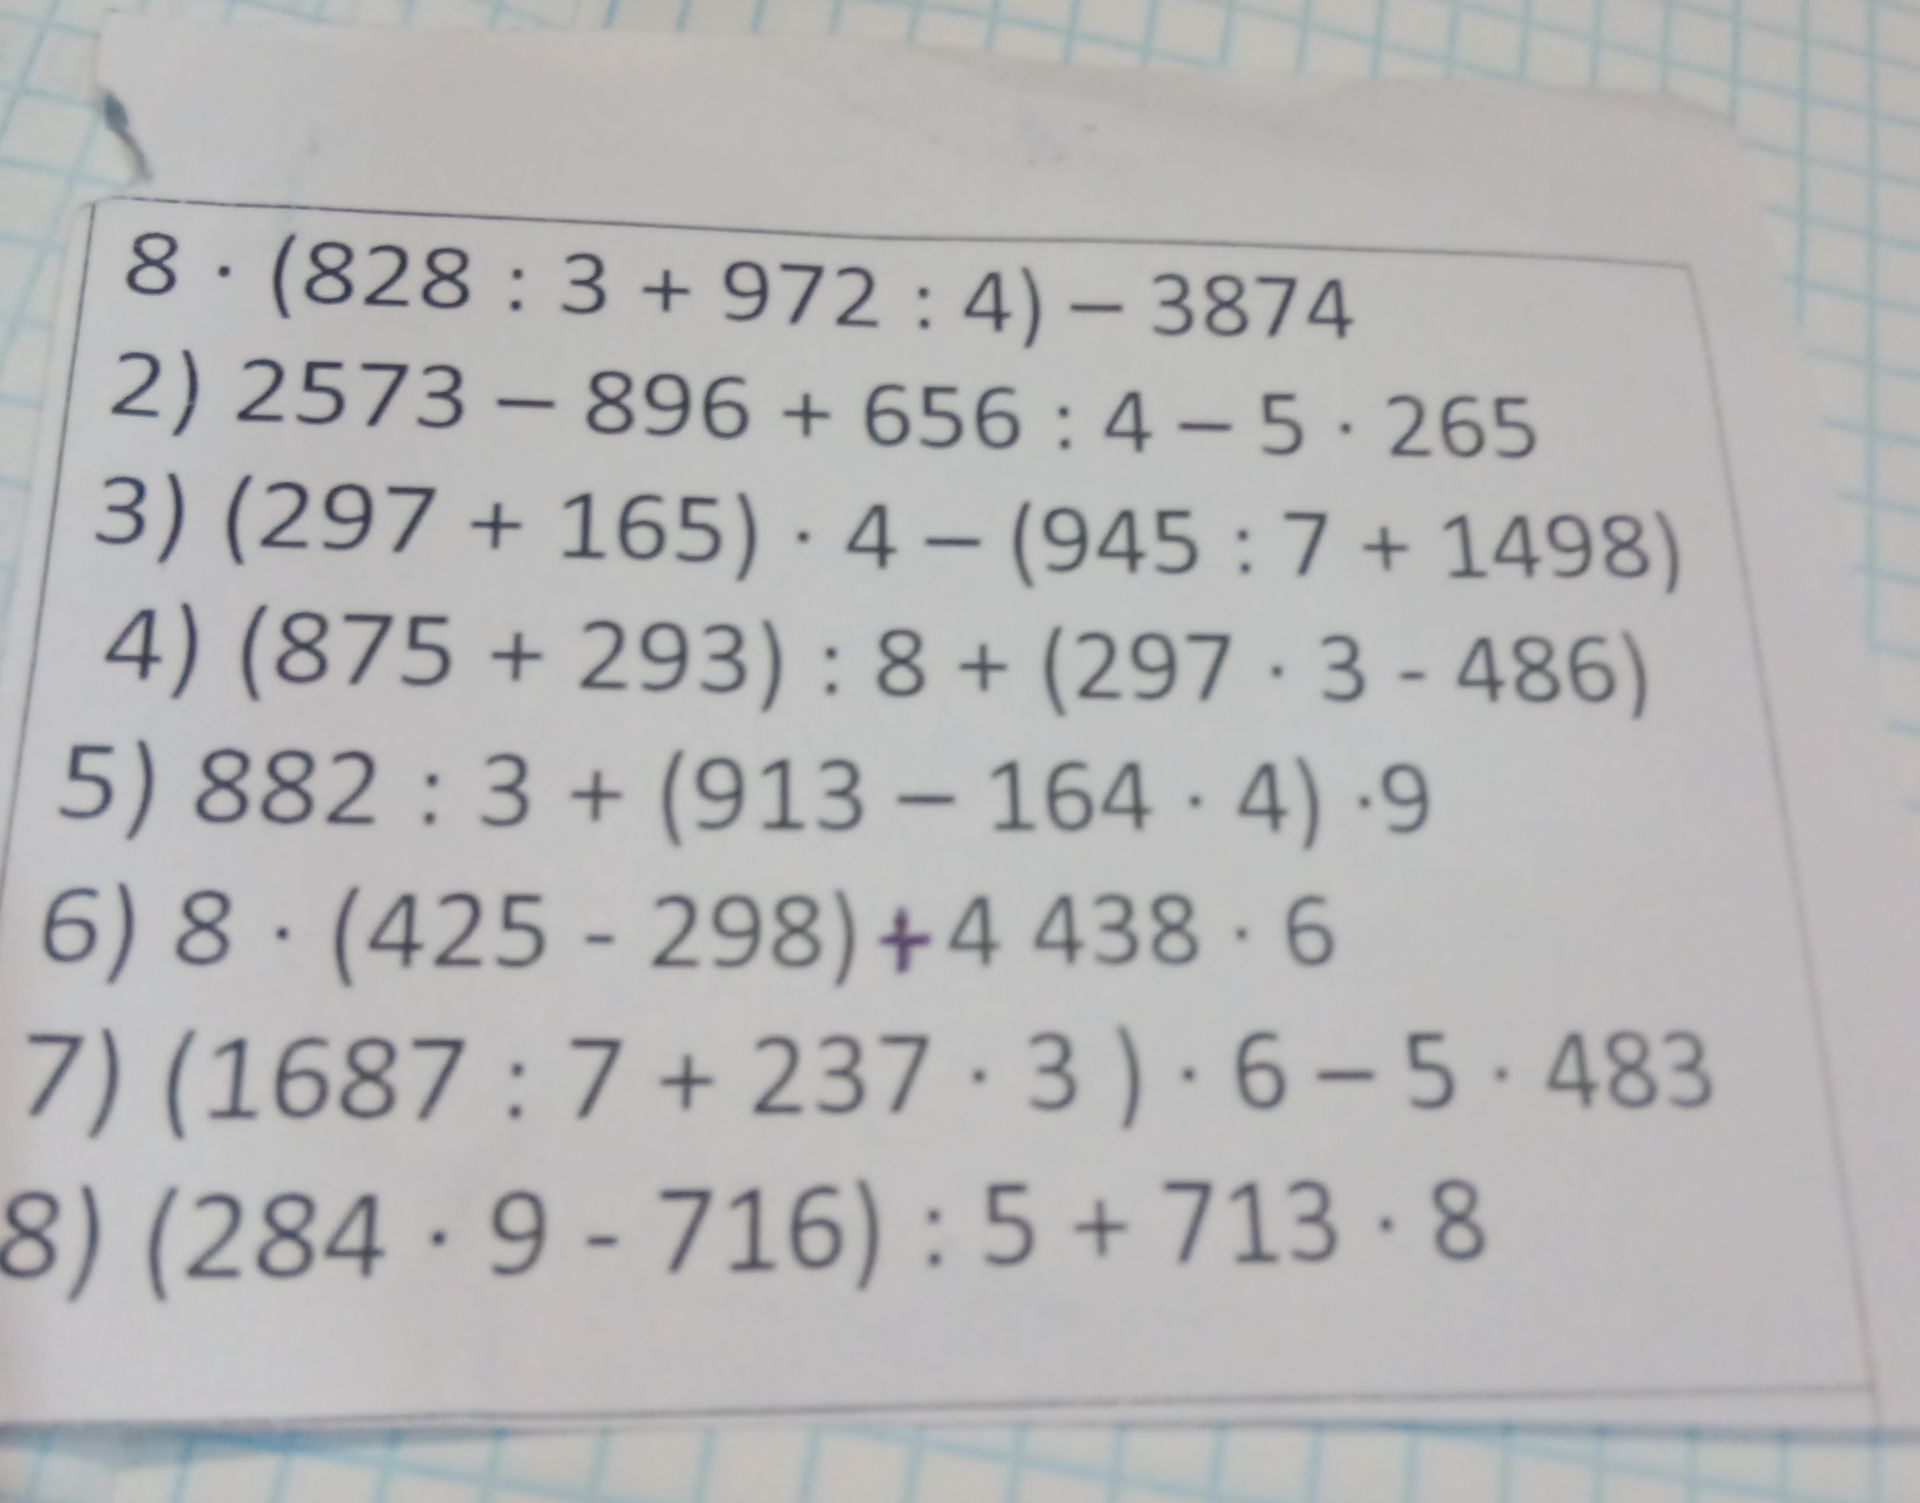 8 · (828 : 3 + 972 : 4) – 3874
2) 2573 – 896 + 656 : 4 – 5 · 265
3) (297 + 165) · 4 – (945 : 7 + 1498)
4) (875 + 293) : 8 + (297 · 3 - 486)
5) 882 : 3 + (913 – 164 · 4) ·9
6) 8 · (425 - 298)+4 438 · 6
7) (1687 : 7 + 237 · 3 ) · 6 – 5 · 483
8) (284 · 9 - 716) : 5 + 713 · 8